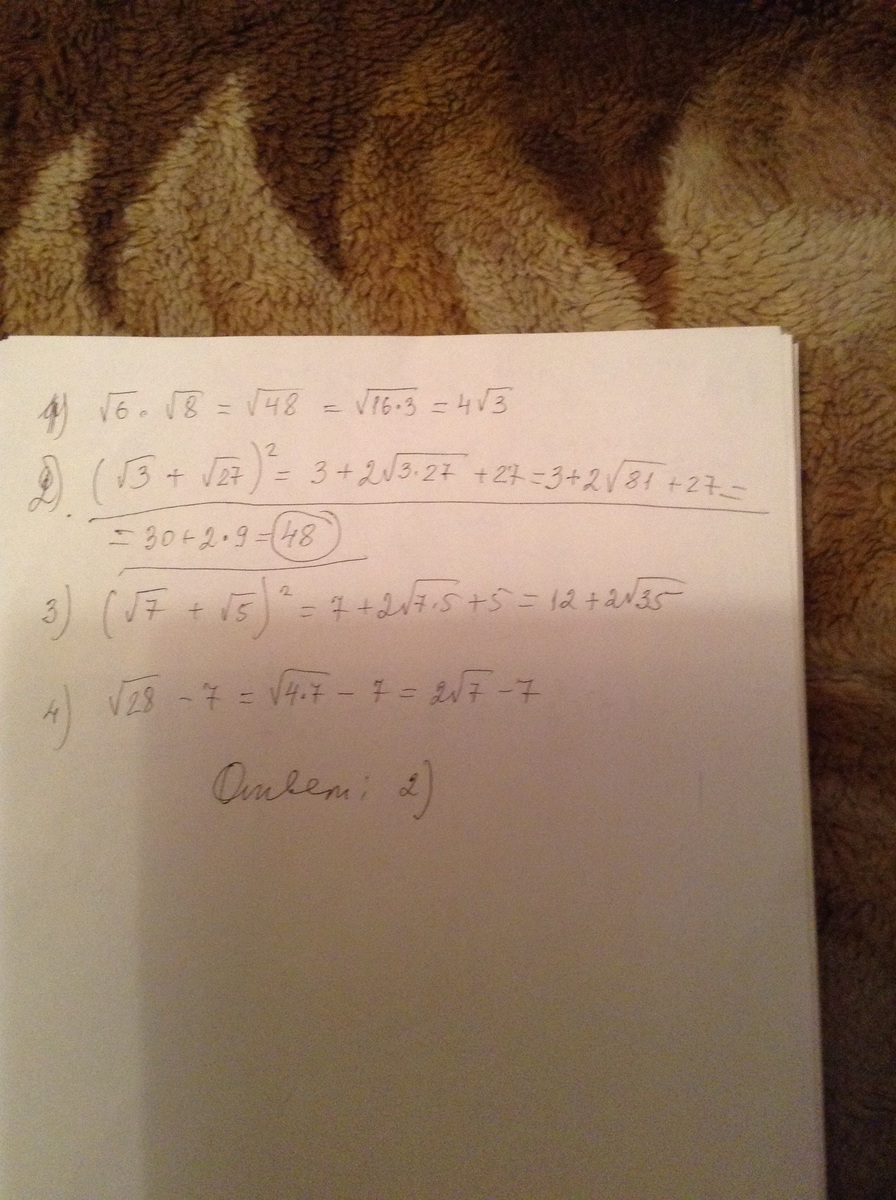 1) √6 · √8 = √48 = √16·3 = 4√3
2). (√3 + √27)² = 3 + 2√3·27 + 27 = 3 + 2√81 + 27 =
= 30 + 2·9 = 48
3) (√7 + √5)² = 7 + 2√7·5 + 5 = 12 + 2√35
4) √28 - 7 = √4·7 - 7 = 2√7 - 7
Ответ: 2)